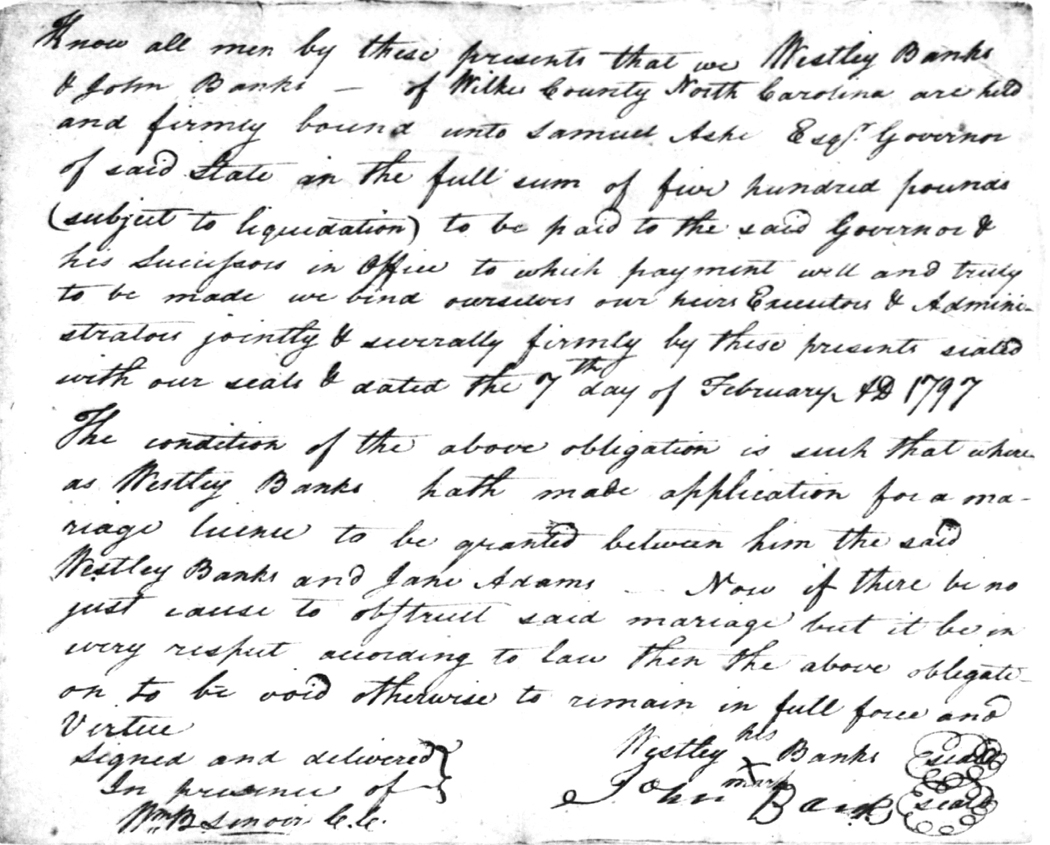 Know all men by these presents that we Westley Banks
& John Banks — of Wilkes County North Carolina are held
and firmly bound unto Samuel Ashe Esqr. Governor
of said State in the full sum of five hundred pounds
(subject to liquidation) to be paid to the said Governor &
his Successors in Office to which payment well and truly
to be made we bind ourselves our heirs Executors & Admini-
strators jointly & severally firmly by these presents sealed
with our seals & dated the 7th day of February AD 1797
The condition of the above obligation is such that where
as Westley Banks hath made application for a ma-
riage licence to be granted between him the said
Westley Banks and Jane Adams — Now if there be no
just cause to obstruct said mariage but it be in
every respect according to law then the above obligati-
on to be void otherwise to remain in full force and
Virtue
Signed and delivered }
In presence of }
Wm B Lenoir C.C.
Westley his X mark Banks seal
John Banks seal